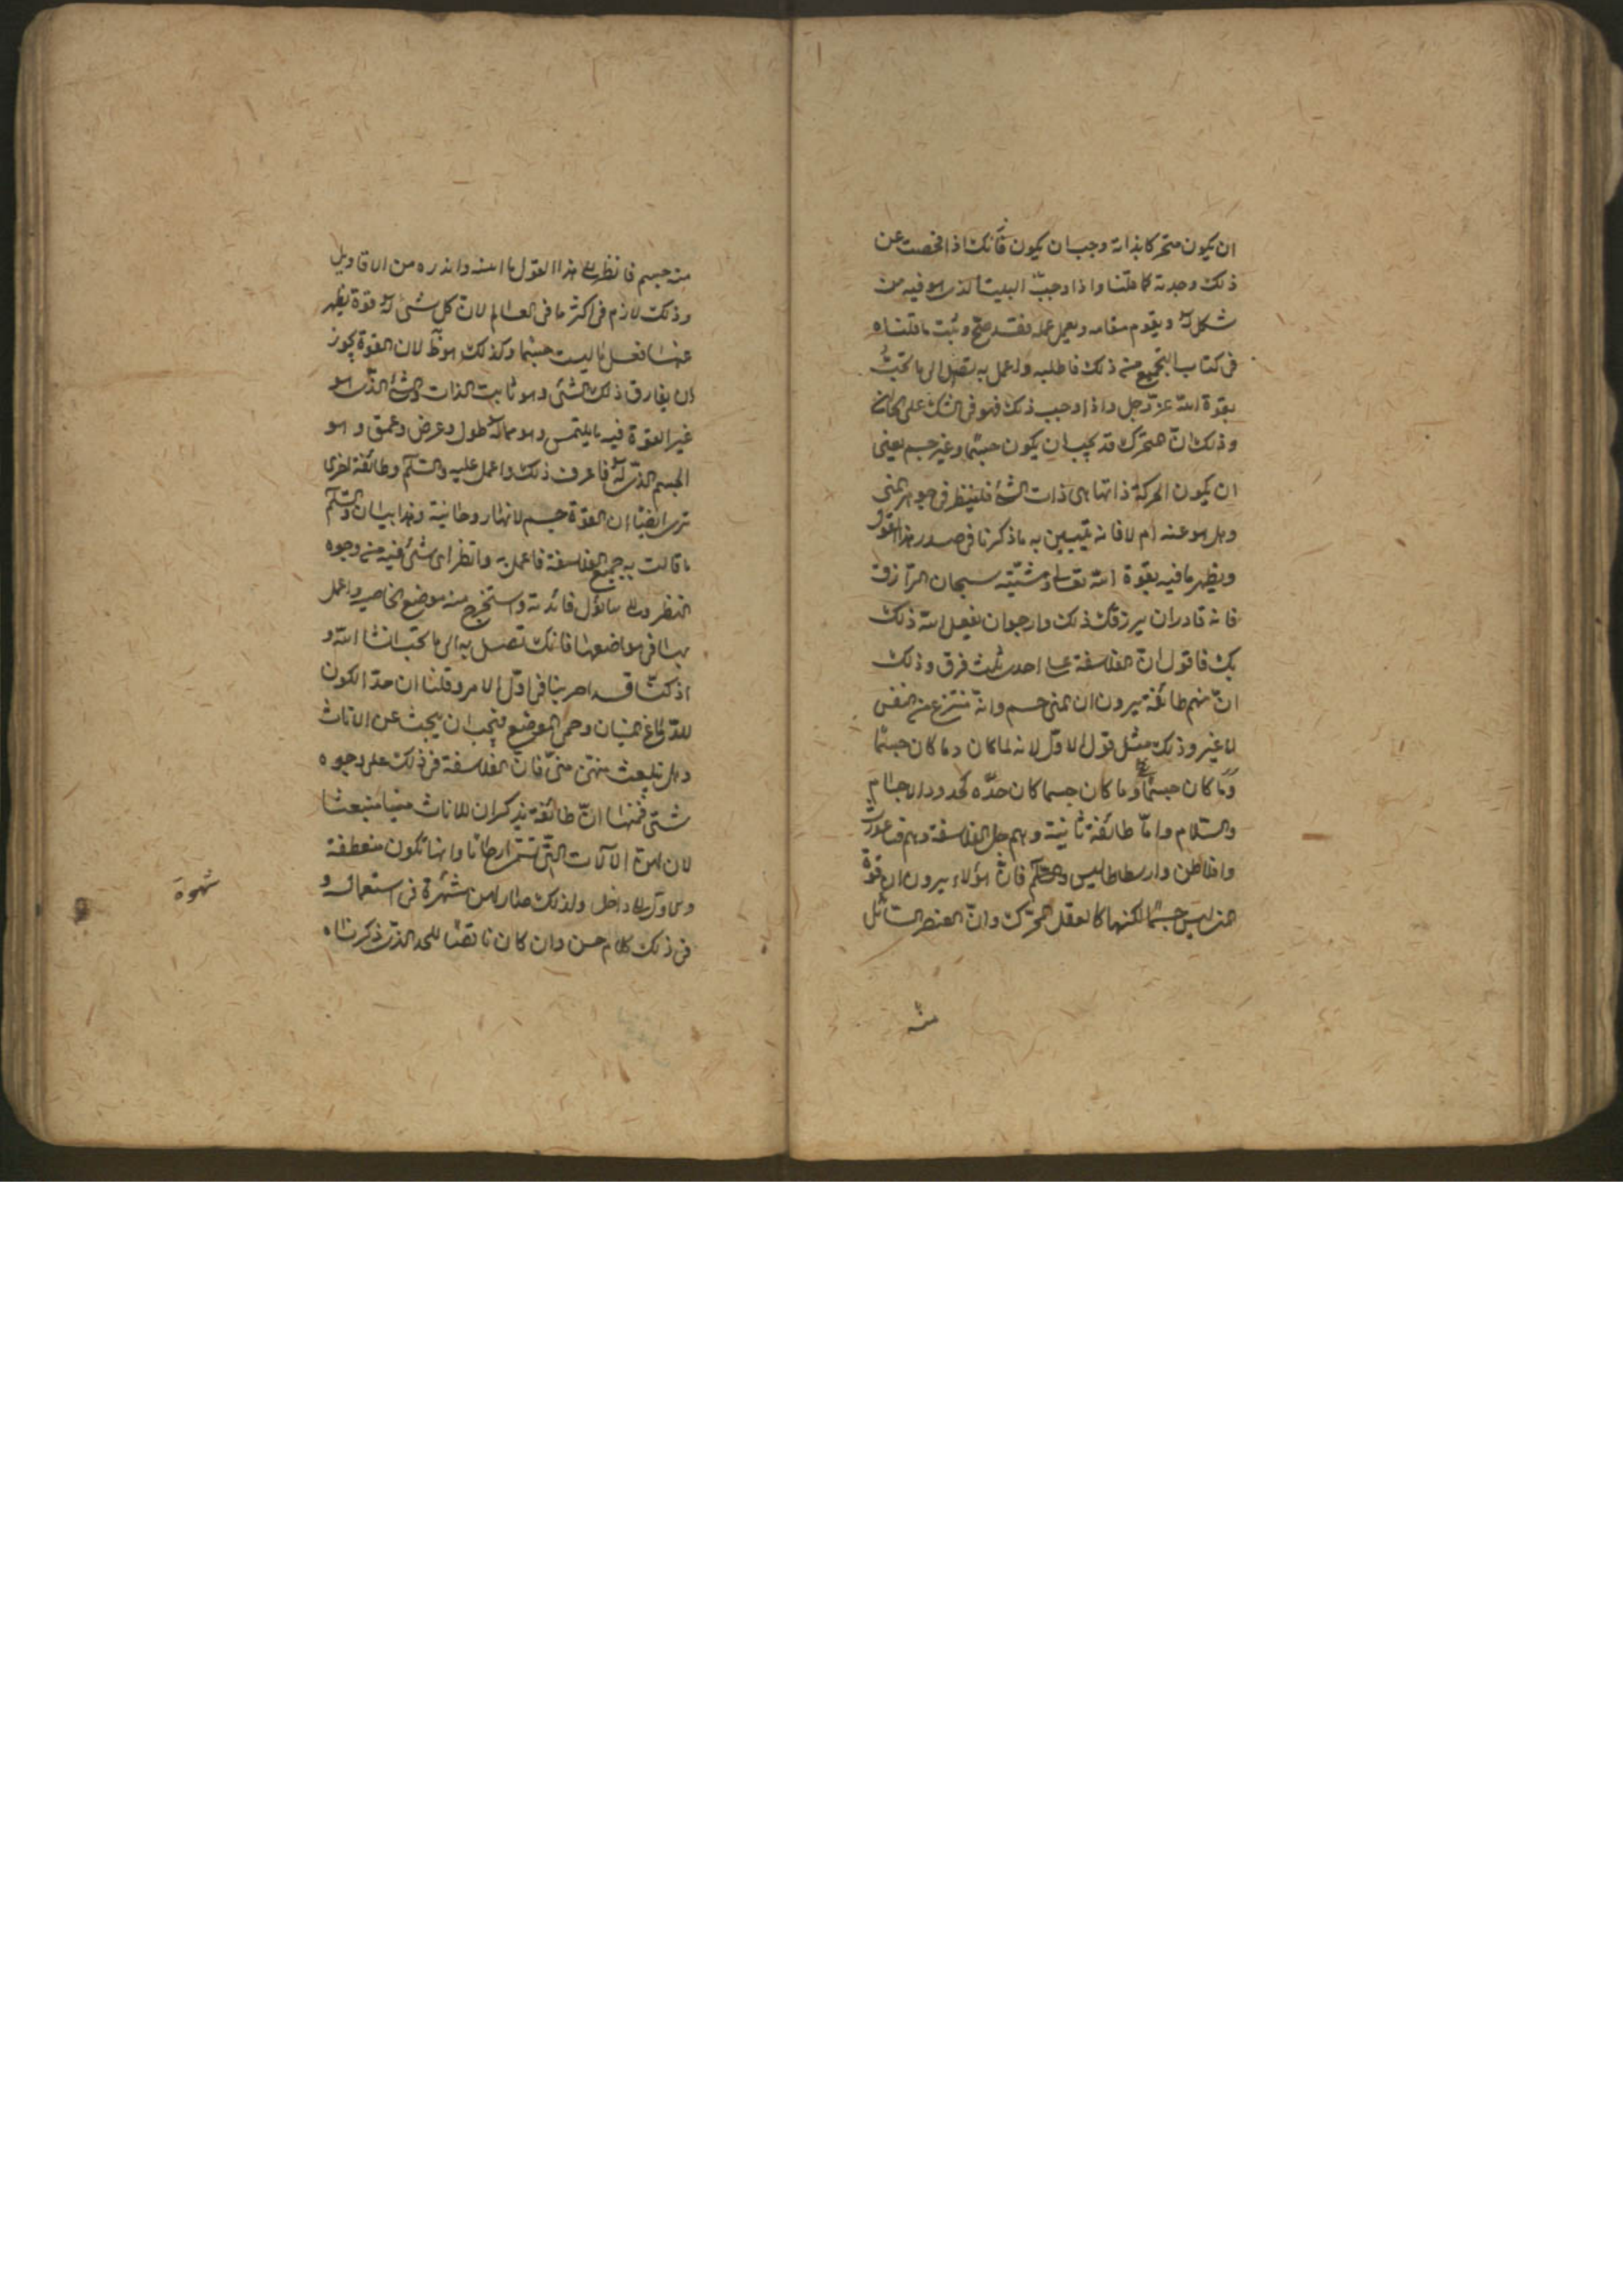 ان يكون متحركا بذاته وجب ان يكون فانك اذا فحصت عن
ذلك وجدته كما قلنا واذا وجب البيت الذى هو فيه من
شكل له ويقوم مقامه ويعمل عمله فقد صح وثبت ما قلناه
فى كتاب التجميع من ذلك فاطلبه واعمل به تصل الى ما تحب
بقوة الله عز وجل واذا وجب ذلك فهو فى الشك على
وذلك ان المتحرك قد يجب ان يكون جسما وغير جسم يعنى
ان يكون الحركة ذاتها هى ذات الشئ فلينظر فى جوهر المنى
وهل هو عنه ام لا فانه يتبين به ما ذكرنا فى صدر هذا القول
ويظهر ما فيه بقوة الله تعالى ومشيته سبحان الرازق
فانه قادر ان يرزقك ذلك وارجو ان يفعل الله ذلك
بك فاقول ان الفلاسفة على احدى ثلث فرق وذلك
ان منهم طائفة يرون ان المنى جسم وانه منتزع عن النفس
لا غير وذلك مثل قول الاول لانه لما كان دما كان جسما
وما كان جسما وما كان جسما كان حده كحدود الاجسام
والسلام واما طائفة ثانية وهم جل الفلاسفة وهم فيثاغورث
وافلاطن وارسطاطاليس والحكم فان هؤلاء يرون ان قوة
المنى ليس جسما لكنها كالعقل المحرك وان العنصر السائل
منه
منه جسم فانظر الى هذا القول ما ابينه وانذره من الاقاويل
وذلك لازم فى اكثر ما فى العالم لان كل شئ له قوة يظهر
عنها فعل ما ليست جسما وكذلك هو لان القوة يجوز
ان يفارق ذلك الشئ وهو ثابت الذات والشئ الذى هو
غير القوة فيه ما يلتمس وهو ماله طول وعرض وعمق وهو
الجسم الذى له فاعرف ذلك واعمل عليه والسلم وطائفة اخرى
ترى ايضا ان القوة جسم لانها روحانية وهذا بيان والسلم
ما قالت به جميع الفلاسفة فاعمل به وانظر اى شئ فيه من وجوه
النظر فائدته واستخرج منه موضع الخاصية واعمل
بها فى مواضعها فانك تصل به الى ما تحب انشا الله و
اذ كنا قد اخبرنا فى اول الامر وقلنا ان حد الكون
للدماغ البيان وحمى الموضع فيجب ان يبحث عن الاناث
وهل ينبعث منهن منى فان الفلاسفة فى ذلك على وجوه
شتى فمنها ان طائفة يذكر ان للاناث منيا منبعثا
لان لهن الآلات التى تستمر ارحاما وانها تكون منعطفة
الى داخل ولذلك صار لهن شهرة فى استعماله و
فى ذلك كلام حسن وان كان ناقضا للحد الذى ذكرناه
شهوة